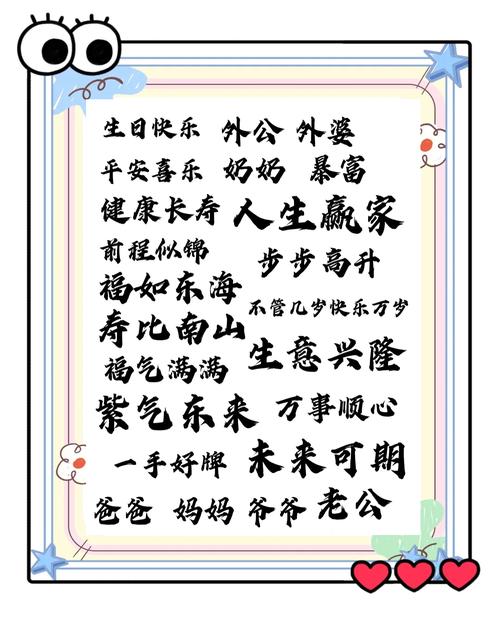 生日快乐 外公 外婆
平安喜乐 奶奶 暴富
健康长寿 人生赢家
前程似锦 步步高升
福如东海 不管几岁快乐万岁
寿比南山 生意兴隆
福气满满
紫气东来 万事顺心
一手好牌 未来可期
爸爸 妈妈 爷爷 老公